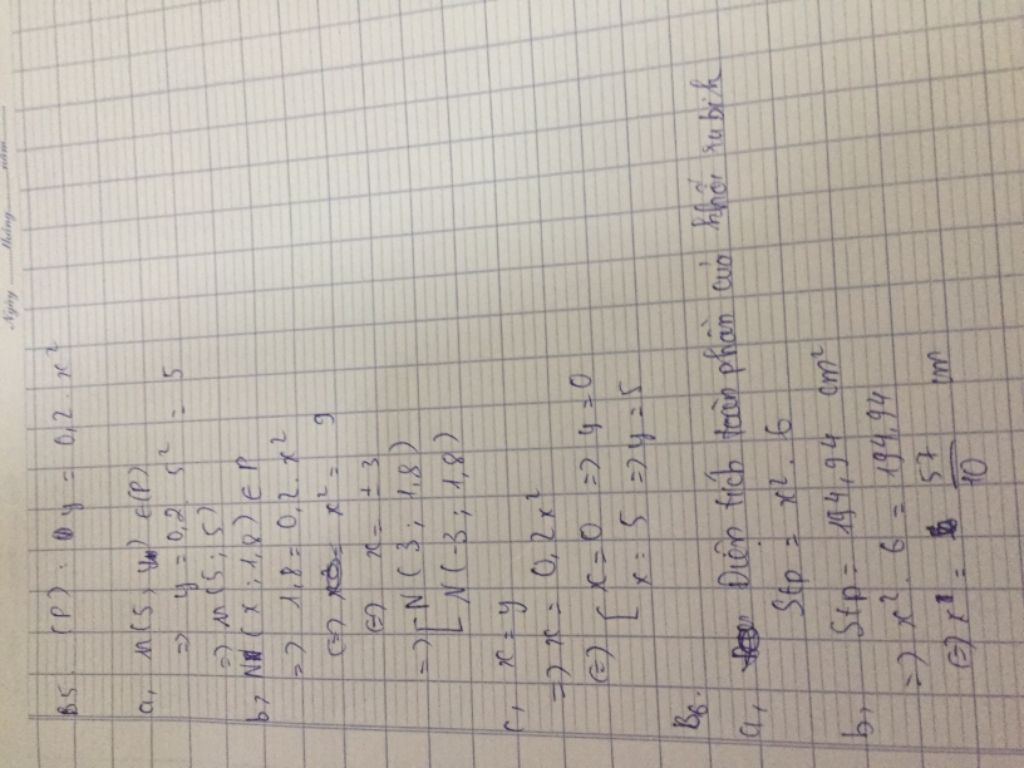 Ngày ........ tháng ........ năm ........
B5. (P): y = 0,2 . x²
a, M(5, y) ∈ (P)
=> y = 0,2 . 5² = 5
=> M(5; 5)
b, N(x; 1,8) ∈ P
=> 1,8 = 0,2 . x²
(=) x² = 9
(=) x = ± 3
=> [ N(3; 1,8)
[ N(-3; 1,8)
c, x = y
=> x = 0,2x²
(=) [ x = 0 => y = 0
[ x = 5 => y = 5
B6.
a, Diện tích toàn phần của khối rubik
Stp = x² . 6
b, Stp = 194,94 cm²
=> x² . 6 = 194,94
(=) x = 57/10 cm